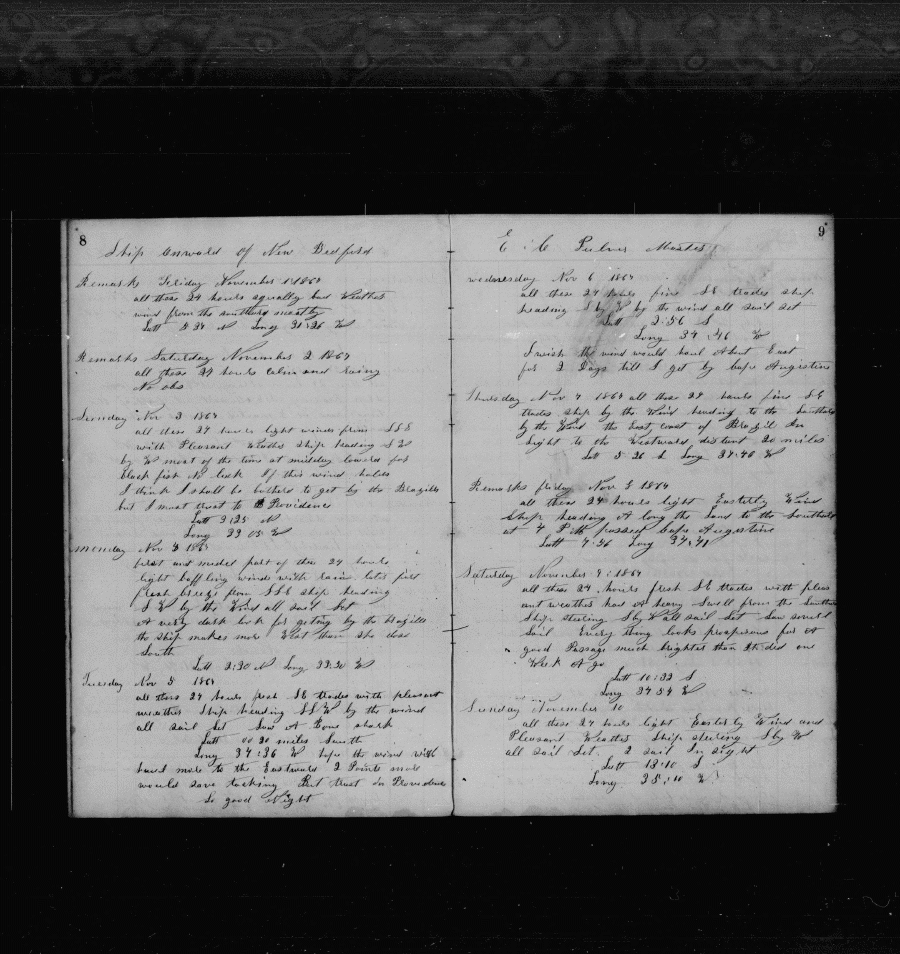 8
Ship Onward of New Bedford
Remarks Friday November 1 1867
all these 24 hours squally bad Weather
wind from the southard mostly
Latt 5 24 N Long 31:26 W
Remarks Saturday November 2 1867
all these 24 hours calm and rainy
No obs
Sunday Nov 3 1867
all these 24 hours light winds from SSE
with Pleasant Weather ship heading S W
by W most of the time at midday lowered for
black fish No luck If this wind holds
I think I shall be bothered to get by the Brazills
but I must trust to Providence
Latt 3 25 N
Long 33 05 W
Monday Nov 4 1867
first and middel part of these 24 hours
light baffling winds with rain later part
fresh breeze from SSE ship heading
S W by the Wind all sail Set
A very dark look for geting by the brazills
the ship makes more West than she dose
South
Latt 2:30 N Long 33:30 W
Tuesday Nov 5 1867
all these 24 hours fresh SE trades with pleasant
weather Ship heading SSW by the wind
all sail Set Saw A Bone shark
Latt 00 20 miles South
Long 34:36 W hope the wind will
haul more to the Eastward 2 Points more
would save tacking But trust in Providence
So good Night
9
E. C Pulver Master
Wednesday Nov 6 1867
all these 24 hours fine SE trades ship
heading S by W by the wind all sail set
Latt 2:56 S
Long 34:46 W
I wish the wind would haul About East
for 2 Days till I get by Cape Augustine
Thursday Nov 7 1867 all these 24 hours fine SE
trades ship by the Wind heading to the Southard
by the Wind the East coast of Brazil In
Sight to the Westward distant 20 miles
Latt 5 26 S Long 34:40 W
Remarks friday Nov 8 1867
all these 24 hours light Easterly Wind
Ship heading A long the Land to the Southard
at 4 P M passed Cape Augustine
Latt 7:36 Long 34:41
Saturday November 9: 1867
all these 24 hours fresh SE trades with pleas
ant weather had A heavy Swell from the Southard
Ship steering S by W all sail Set Saw several
Sail Every thing looks prosperous for A
good Passage much brighter than It did one
Week A go
Latt 10:33 S
Long 34 54 W
Sunday November 10
all these 24 hours light Easterly Wind and
Pleasant Weather Ship steering S by W
all sail Set 2 sail In sight
Latt 13:10 S
Long 35:10 W